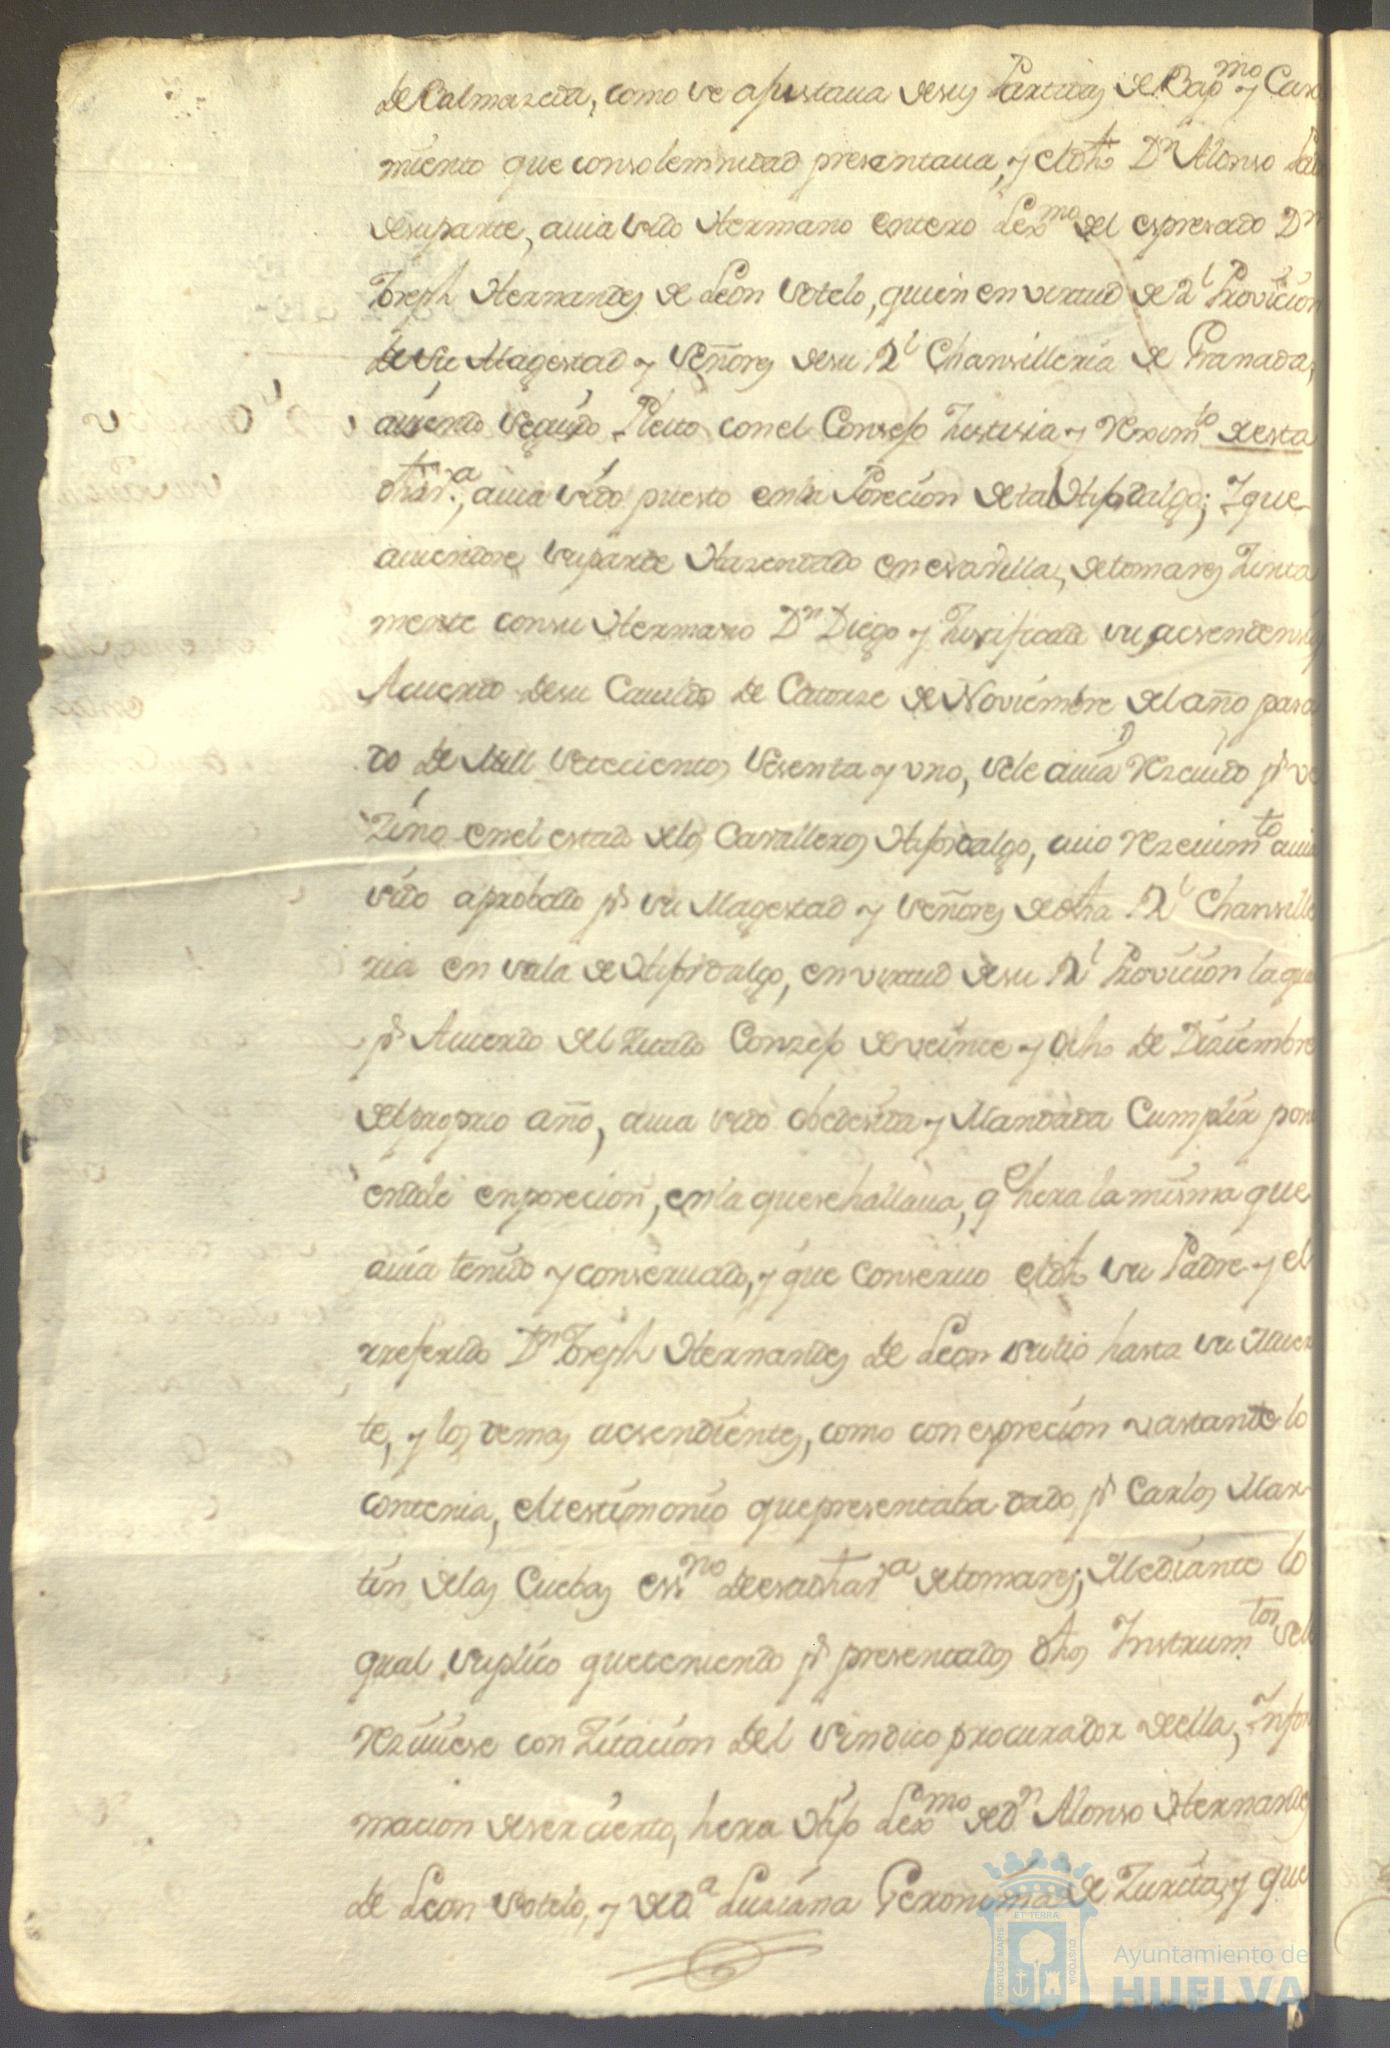 de Calmaestra, como se ajustaua desus Partidas de Bap.mo y Casa
miento que con solemnidad presentaua, y el dho Dn Alonso Padre
desuparte, auia sido Hermano entero Lexmo del espresado Dn
Joseph Hernandes de Leon Sotelo, quien en virtud de Rl Provicion
de Su Magestad y Señores desu Rl Chansilleria de Granada,
auiendo seguido Pleito con el Consejo Justisia y Reximto desta
dha va, auia sido puesto en la Posecion de tal Hijodalgo; Y que
auiendose suparte Hasendado en esa villa, de tomares Junta
mente consu Hermano Dn Diego y Justificado sus acsendensias
Acuerdo desu Cauildo de Catorse de Noviembre del año pasa
do de Mill setecientos sesenta y uno, sele auia Rezeuido pr ve
zino en el estado delos Cavalleros Hijosdalgo, cuio Rezeuimto auia
sido aprobado pr su Magestad y señores de dha Rl Chansille
ria en sala de Hijosdalgo, en virtud desu Rl Provicion la que
pr Acuerdo del zitado Conzejo de veinte y ocho de Diziembre
del proprio año, auia sido obedesida y Mandada Cumplir poni
endole en posecion, en la que se hallaua, qe hera la misma que
auia tenido y conseruado, y que conseruo el dho su Padre y el
rreferido Dn Joseph Hernandes de Leon sutio hasta su Muer
te, y los demas acsendientes, como con esprecion vastante lo
contenia, el testimonio que presentaba dado pr Carlos Mar
tin delas Cuebas essno de esa dha va de tomares; Mediante lo
qual suplico que teniendo pr presentados dhos Instrumtos sele
Rezuiese con Zitacion del sindico procurador de ella, Infor
macion deser cierto, hera Hijo Lexmo de Dn Alonso Hernandes
de Leon Sotelo, y de Da Lusiana Geronima de Zurita, y que
PORTUS MARIS
ET TERRA
CUSTODIA
Ayuntamiento de
HUELVA